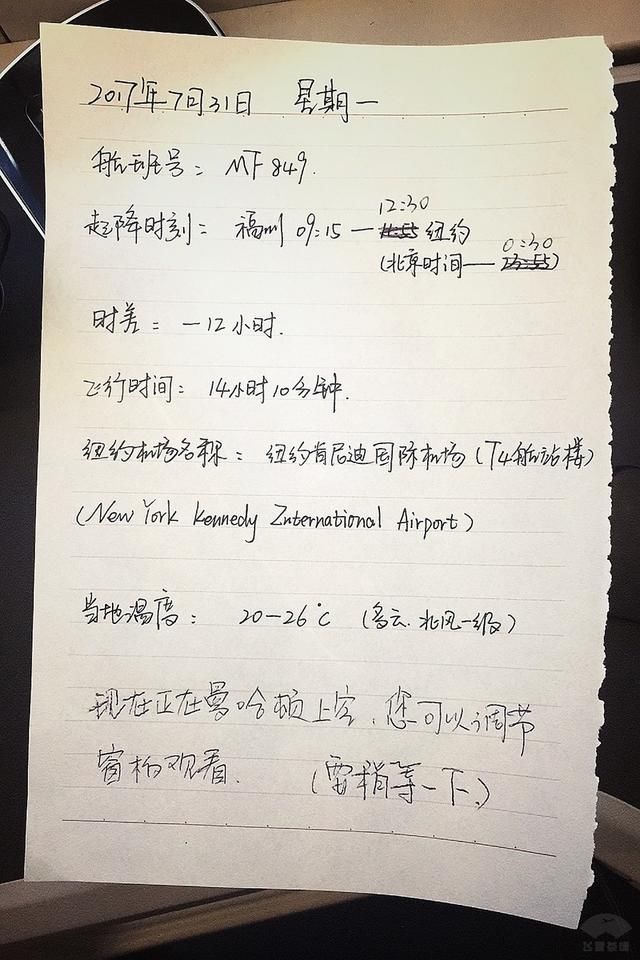 2017年7月31日 星期一
航班号：MF849.
起降时刻：福州 09:15 — 12:30 纽约
(北京时间 — 0:30)
时差：-12小时.
飞行时间：14小时10分钟.
纽约机场名称：纽约肯尼迪国际机场（T4航站楼）
(New York Kennedy International Airport)
当地温度：20-26℃ (多云.北风一级)
现在正在曼哈顿上空，您可以调节
窗板观看. (需稍等一下.)